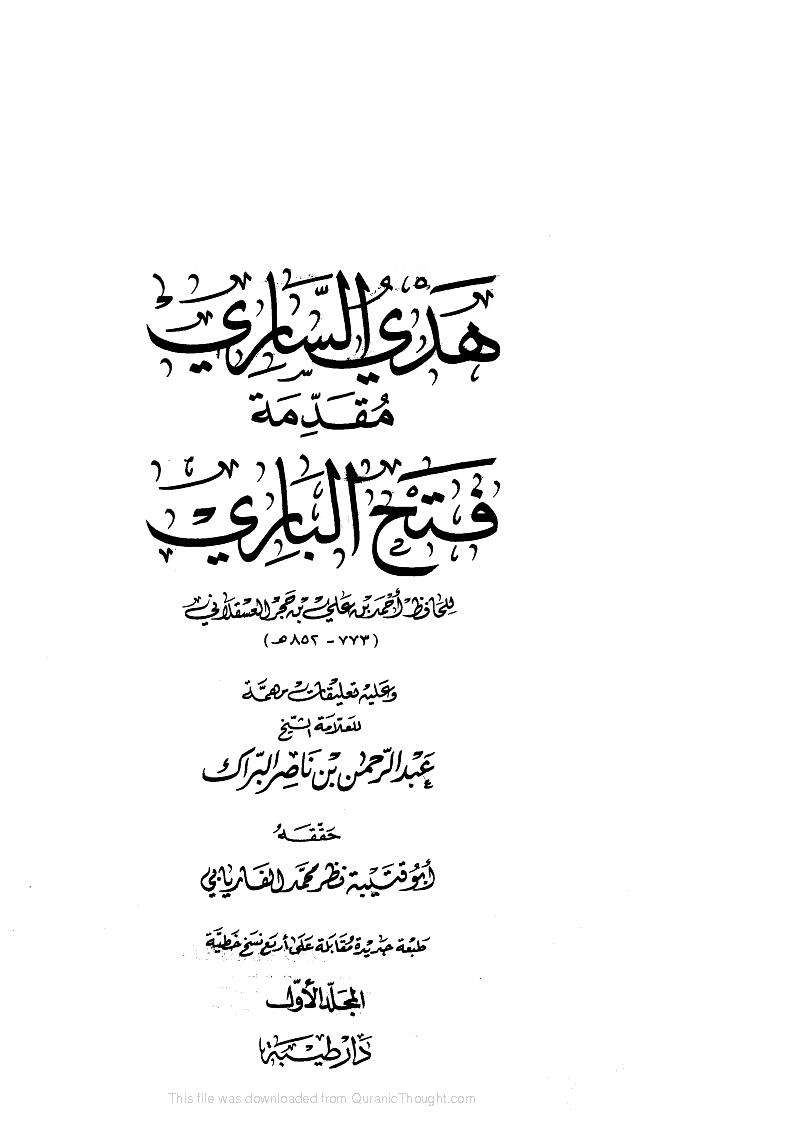 هَدْيُ السَّارِي
مُقَدِّمَة
فَتْحُ البَارِي
لِلحَافِظِ أَحْمَدَ بْنِ عَلِيِّ بْنِ حَجَر العَسْقَلَانِي
(٧٧٣ - ٨٥٢ هـ)
وَعَلَيْهِ تَعلِيقَات مُهِمَّة
لِلعَلَّامَة الشَّيْخ
عَبْدِ الرَّحْمٰنِ بْنِ نَاصِرِ البَرَّاكِ
حَقَّقَهُ
أَبُو قُتَيْبَة نَظَر مُحَمَّد الفَارِيَابِي
طَبعَة جَدِيْدَة مُقَابَلَة عَلَى أَرْبَعِ نُسَخٍ خَطِّيَّة
المُجَلَّد الأَوَّل
دَار طَيْبَة
This file was downloaded from QuranicThought.com